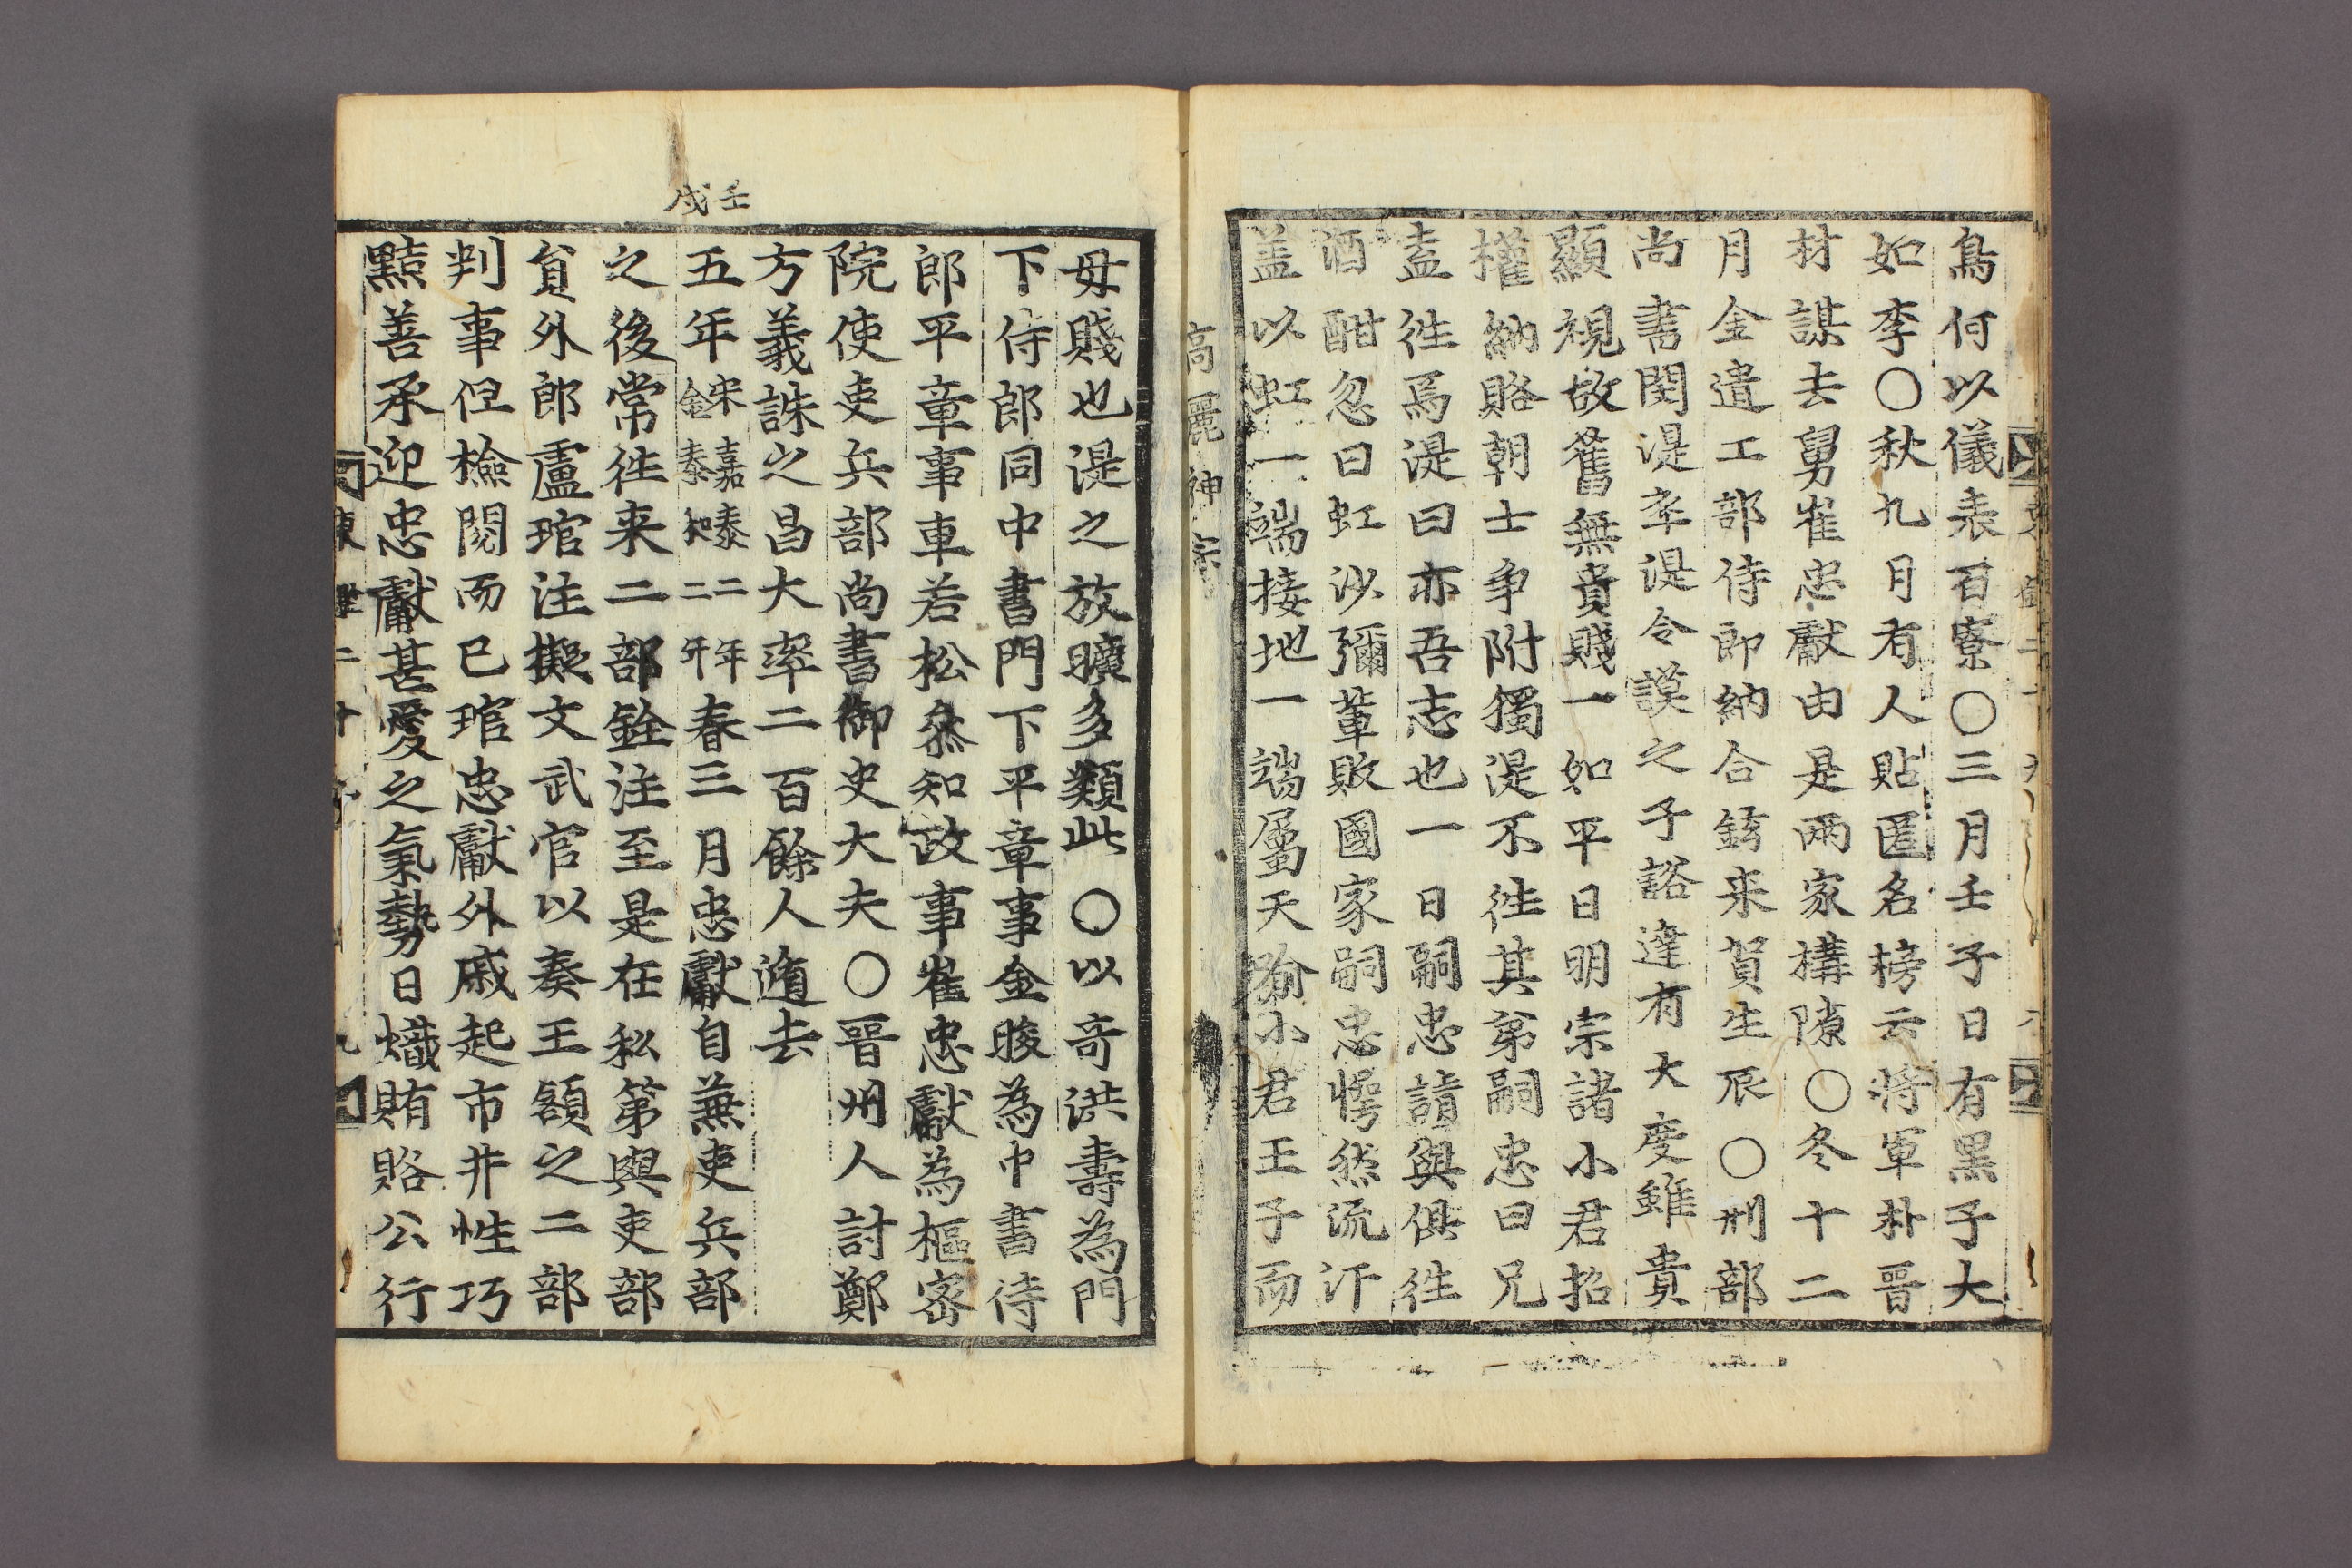 鳥何以儀表百寮○三月壬子日有黑子大
如李○秋九月有人貼匿名榜云將軍朴晋
材謀去舅崔忠獻由是兩家構隙○冬十二
月金遣工部侍郎納合鉉来賀生辰○刑部
尚書閔湜卒湜令謨之子豁達有大度雖貴
顯視故舊無貴賤一如平日明宗諸小君招
權納賂朝士争附獨湜不徃其弟嗣忠曰兄
盍徃焉湜曰亦吾志也一日嗣忠請與俱徃
酒酣忽曰虹沙彌輩敗國家嗣忠愕然流汗
盖以虹一端接地一端屬天喩小君王子而
高麗神宗
母賤也湜之放曠多類此○以奇洪壽為門
下侍郎同中書門下平章事金晙為中書侍
郎平章事車若松叅知政事崔忠獻為樞宻
院使吏兵部尚書御史大夫○晋州人討鄭
方義誅之昌大率二百餘人遁去
壬戌
五年宋嘉泰二年金泰和二年春三月忠獻自兼吏兵部
之後常徃来二部銓注至是在私第與吏部
貟外郎盧琯注擬文武官以奏王頷之二部
判事但檢閱而已琯忠獻外戚起市井性巧
黠善承迎忠獻甚愛之氣勢日熾賄賂公行